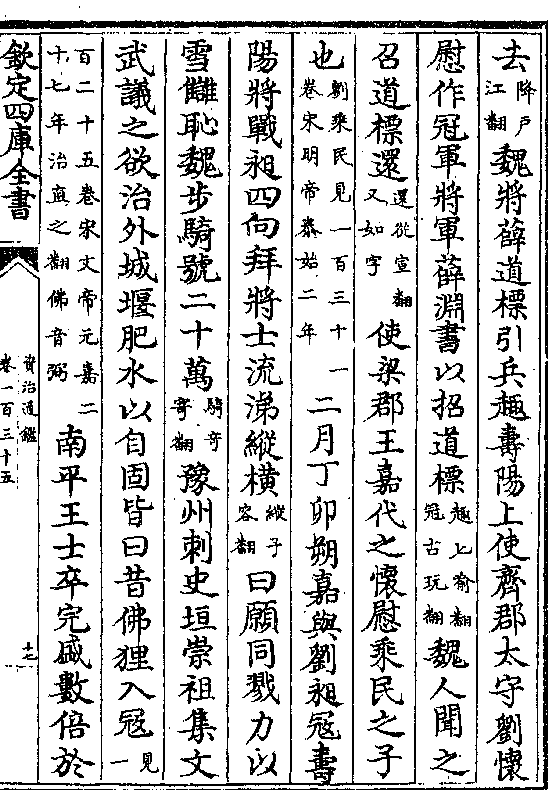 去降戶江翻魏將薛道標引兵趣壽陽上使齊郡太守劉懷
慰作冠軍將軍薛淵書以招道標趣七喻翻冠古玩翻魏人聞之
召道標還還從宣翻又如字使梁郡王嘉代之懷慰乘民之子
也劉乘民見一百三十一卷宋明帝泰始二年二月丁卯朔嘉與劉昶冦壽
陽將戰昶四向拜將士流涕縱橫縱子容翻曰願同戮力以
雪讎恥魏步騎號二十萬騎奇寄翻豫州刺史垣崇祖集文
武議之欲治外城堰肥水以自固皆曰昔佛狸入冦見一
百二十五卷宋文帝元嘉二十七年治直之翻佛音弼南平王士卒完盛數倍於
欽定四庫全書
資治通鑑
卷一百三十五
十七